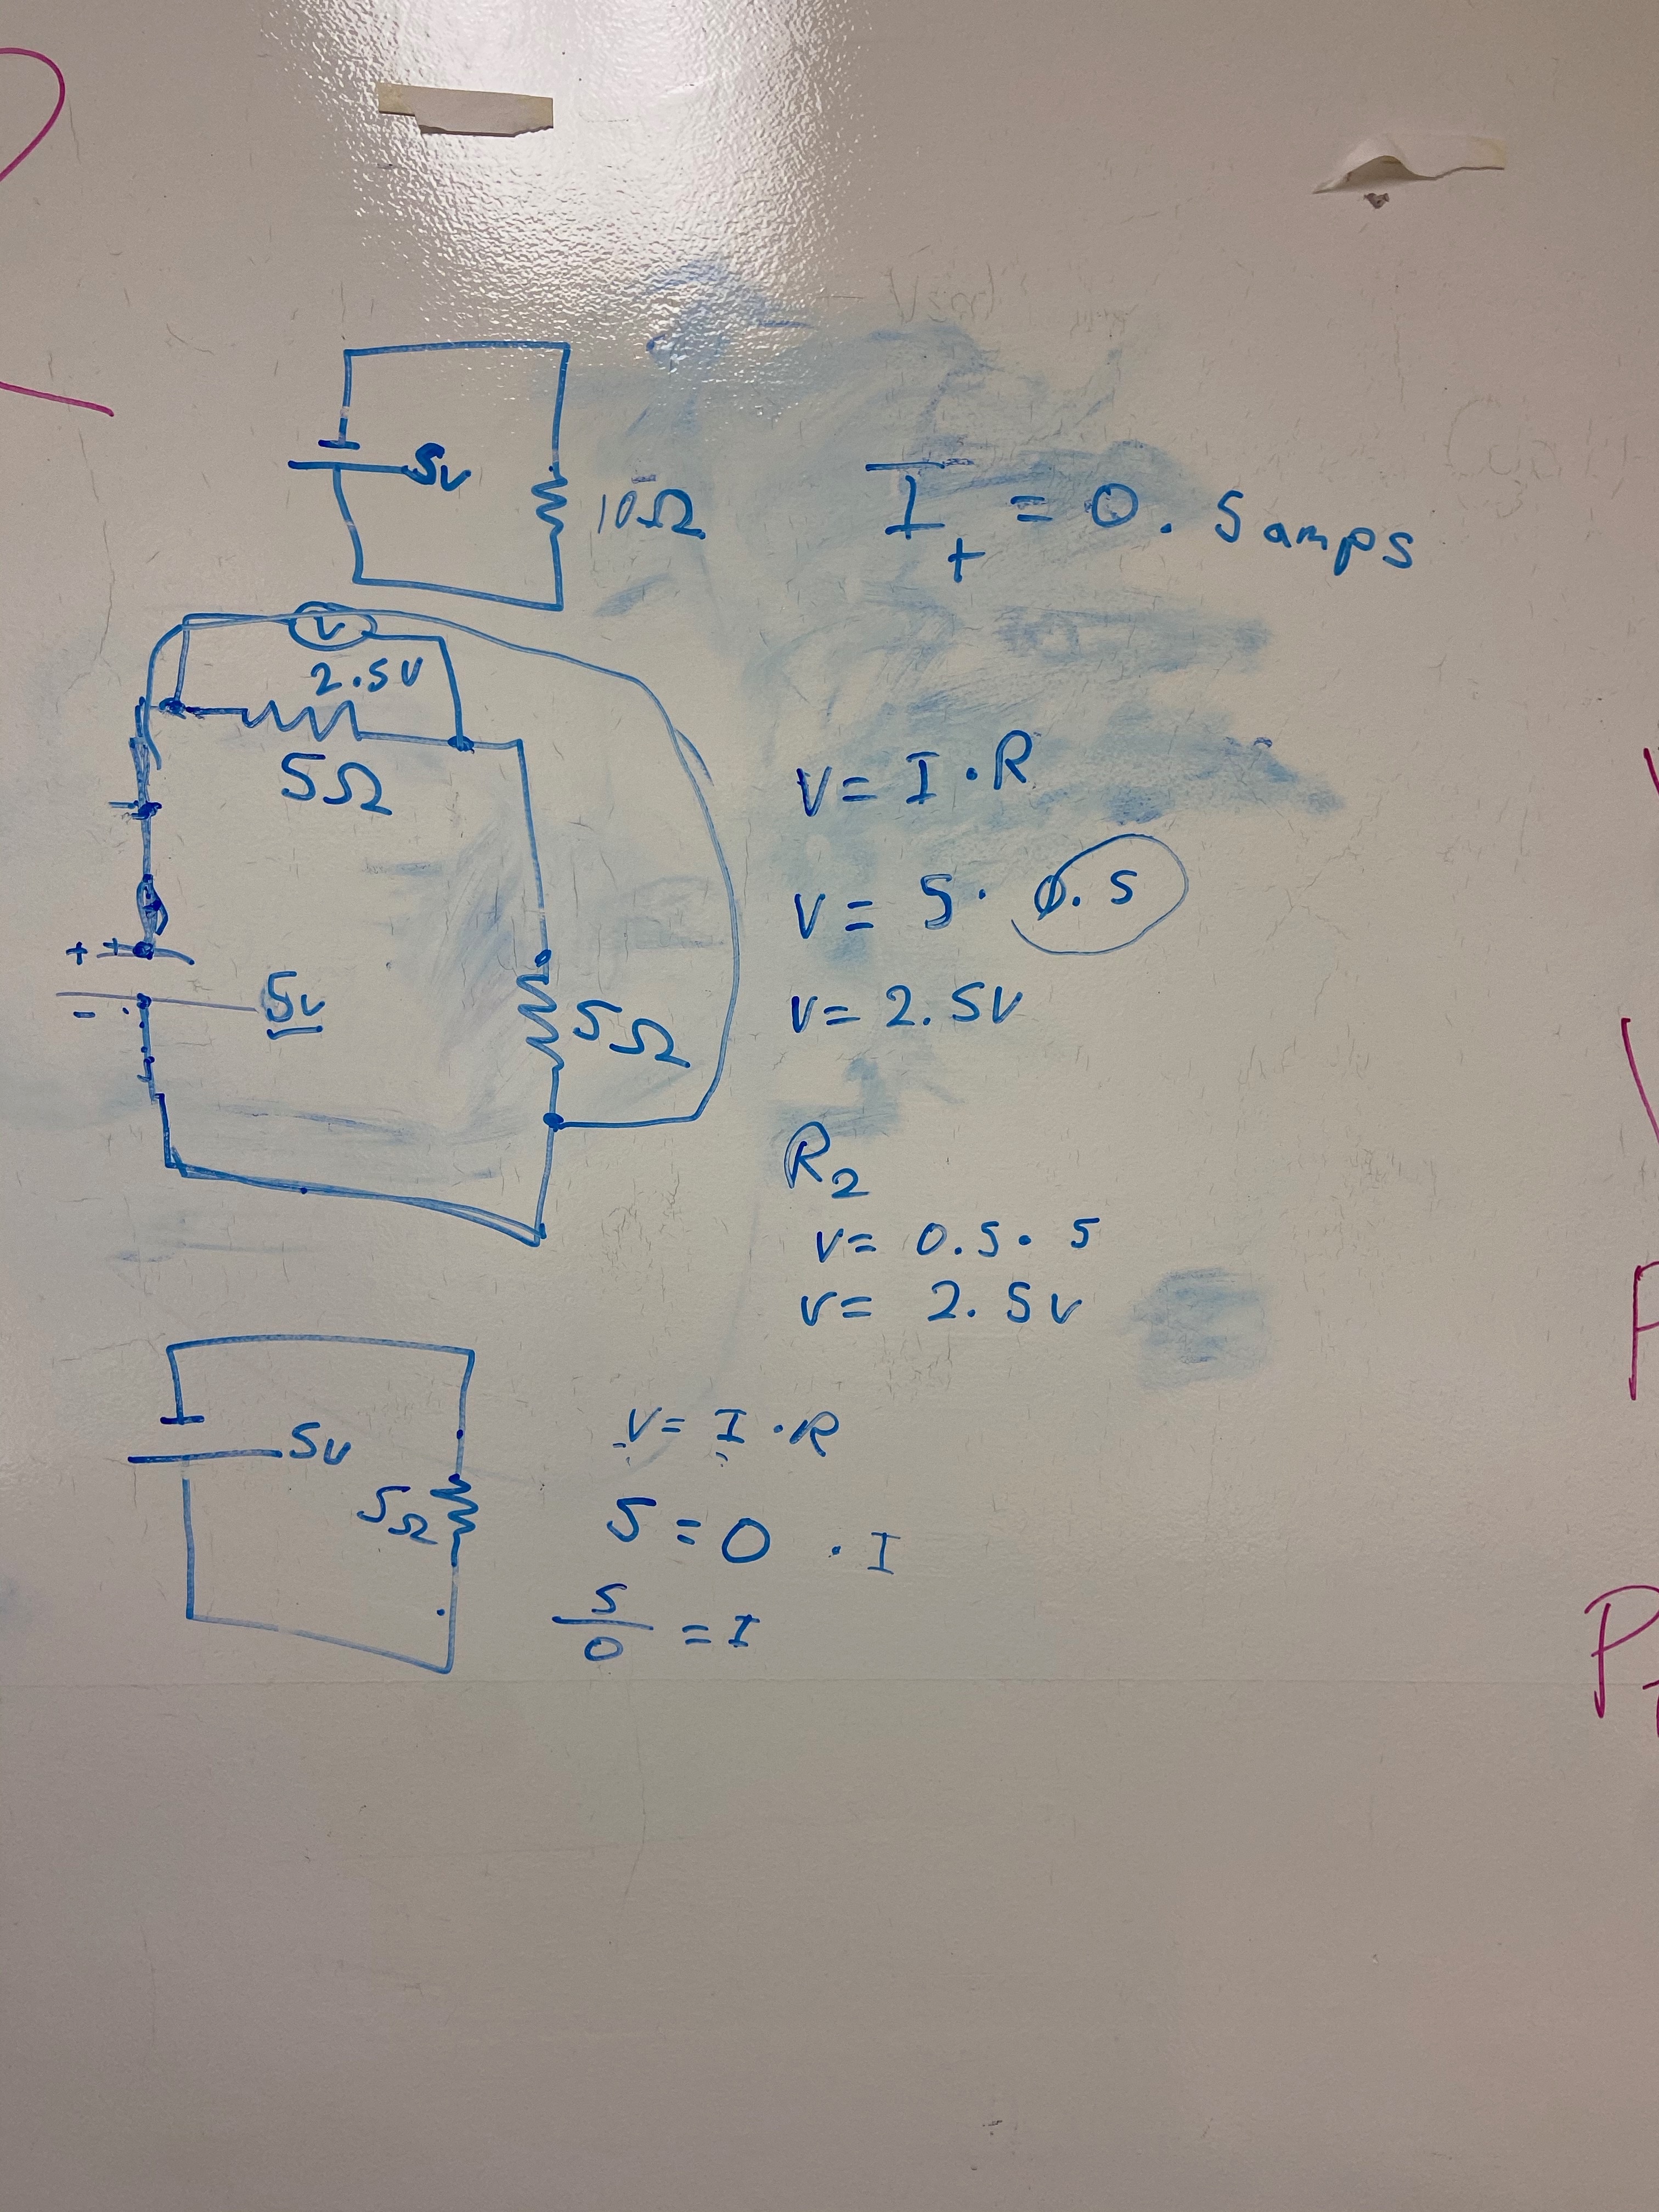 5v
10Ω
I+ = 0.5 amps
V
2.5V
5Ω
V = I · R
V = 5 · 0.5
V = 2.5V
+ +
-
5v
5Ω
R2
V = 0.5 · 5
V = 2.5V
5V
5Ω
V = I · R
5 = 0 · I
5/0 = I
P